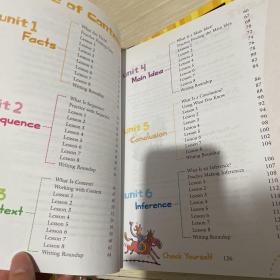 e of Cont
unit 1
Facts
What Are
Practice
Lesson 1
Lesson 2
Lesson 3
Lesson 4
Lesson 5
Lesson 6
Lesson 7
Lesson 8
Writing Roundup
unit 2
quence
What Is Sequence?
Practice with Sequence
Lesson 1
Lesson 2
Lesson 3
Lesson 4
Lesson 5
Lesson 6
Lesson 7
Lesson 8
Writing Roundup
3
text
What Is Context?
Working with Context
Lesson 1
Lesson 2
Lesson 3
Lesson 4
Lesson 5
Lesson 6
Lesson 7
Lesson 8
Writing Roundup
unit 4
Main Idea
What Is a Main Idea?
Practice Finding the Main Idea
Lesson 1
Lesson 2
Lesson 3
Lesson 4
Lesson 5
Lesson 6
Lesson 7
Lesson 8
Writing Roundup
66
68
70
72
74
76
78
80
82
84
unit 5
Conclusion
What Is a Conclusion?
Using What You Know
Lesson 1
Lesson 2
Lesson 3
Lesson 4
Lesson 5
Lesson 6
Lesson 7
Lesson 8
Writing Roundup
86
87
88
90
92
94
96
98
100
102
104
unit 6
Inference
What Is an Inference?
Practice Making Inferences
Lesson 1
Lesson 2
Lesson 3
Lesson 4
Lesson 5
Lesson 6
Lesson 7
Lesson 8
Writing Roundup
106
107
108
110
112
114
116
118
120
122
124
Check Yourself 126